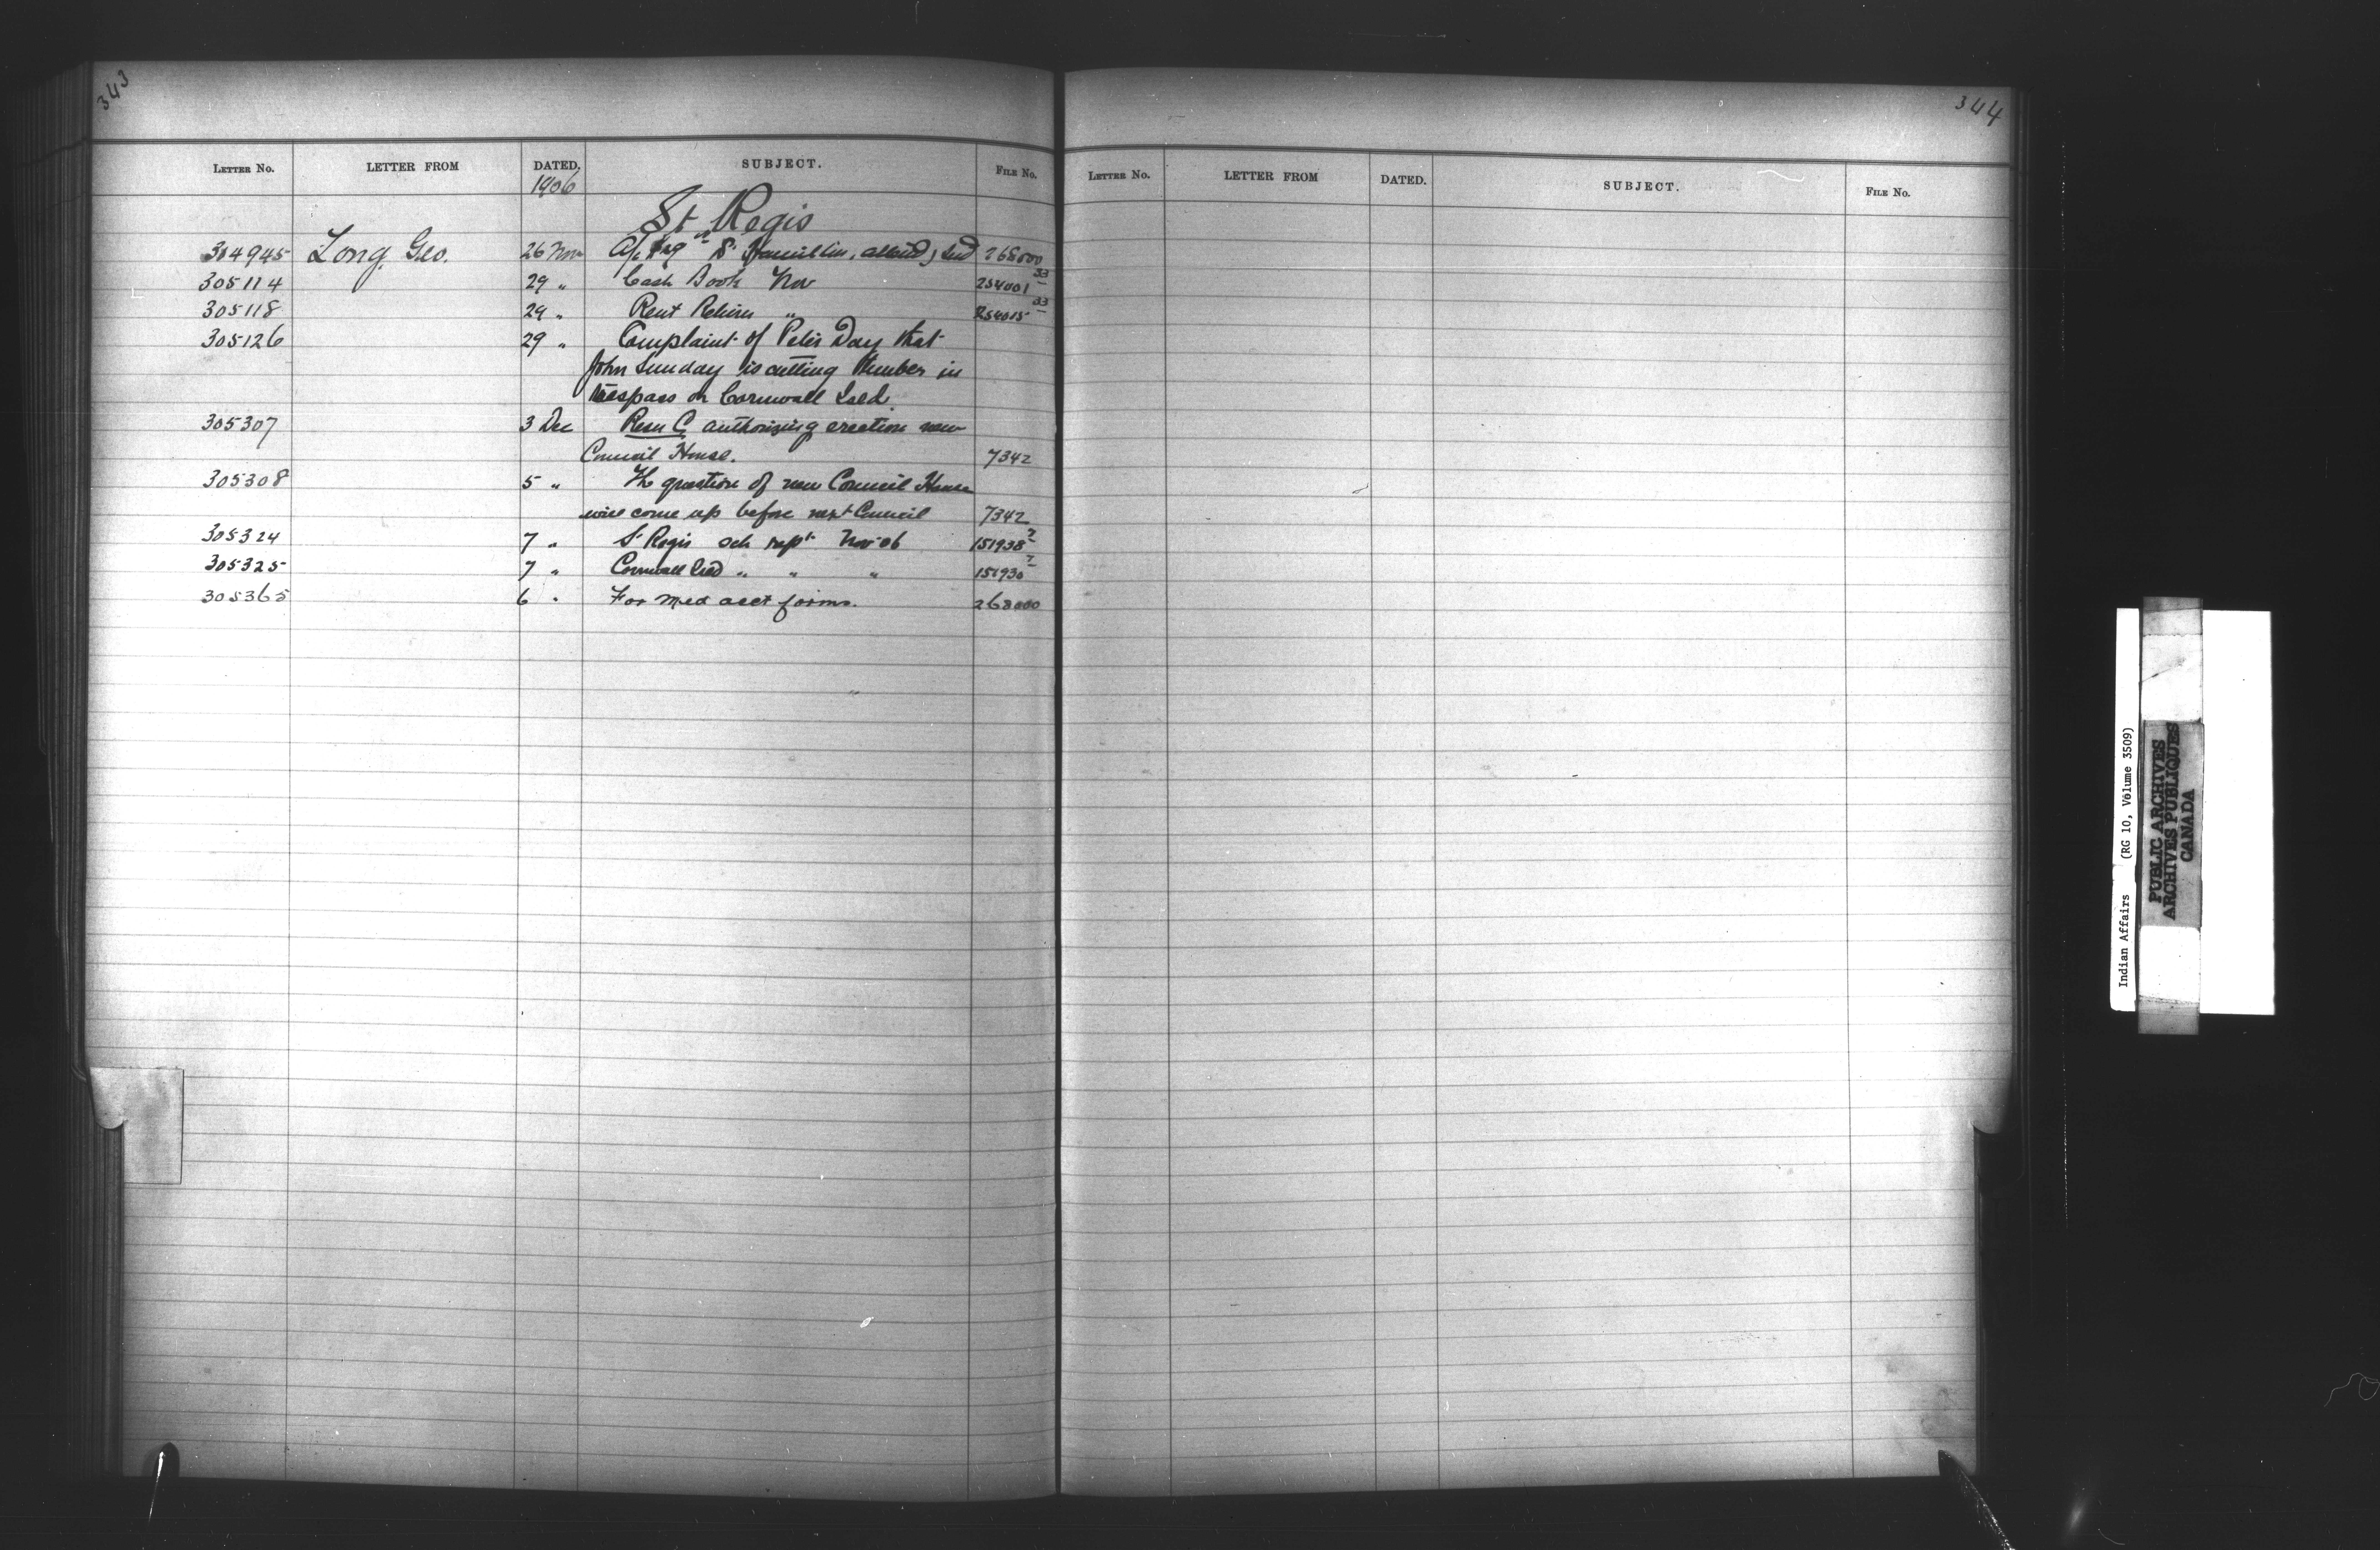 343
LETTER NO. LETTER FROM DATED. SUBJECT. FILE NO.
1906
St Regis
304945 Long, Geo. 26 Nov A/c Hamilton, attend, Ind 268000
305114 29 " Cash Book Nov 254001 33
305118 29 " Rent Return " 254015 33
305126 29 " Complaint of Peter Day that
John Sunday is cutting timber in
trespass on Cornwall Isld.
305307 3 Dec Resn C authorizing erection new
Council House. 7342
305308 5 " The question of new Council House
will come up before next Council 7342
305324 7 " St Regis sch rept Nov 06 151938 2
305325 7 " Cornwall Isld " " " 151930 2
305365 6 " For med acct forms. 268000
344
LETTER NO. LETTER FROM DATED. SUBJECT. FILE NO.
Indian Affairs (RG 10, Volume 3509)
PUBLIC ARCHIVES
ARCHIVES PUBLIQUES
CANADA